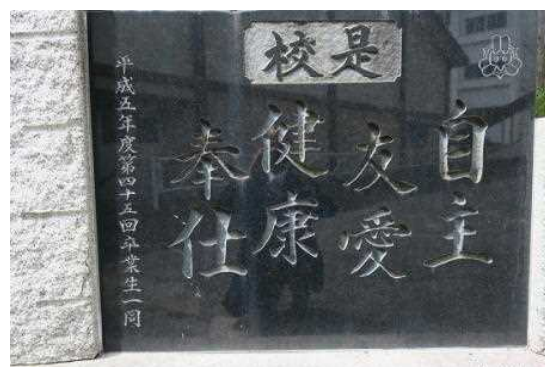 校是
自主
友愛
健康
奉仕
平成五年度第四十五回卒業生一同